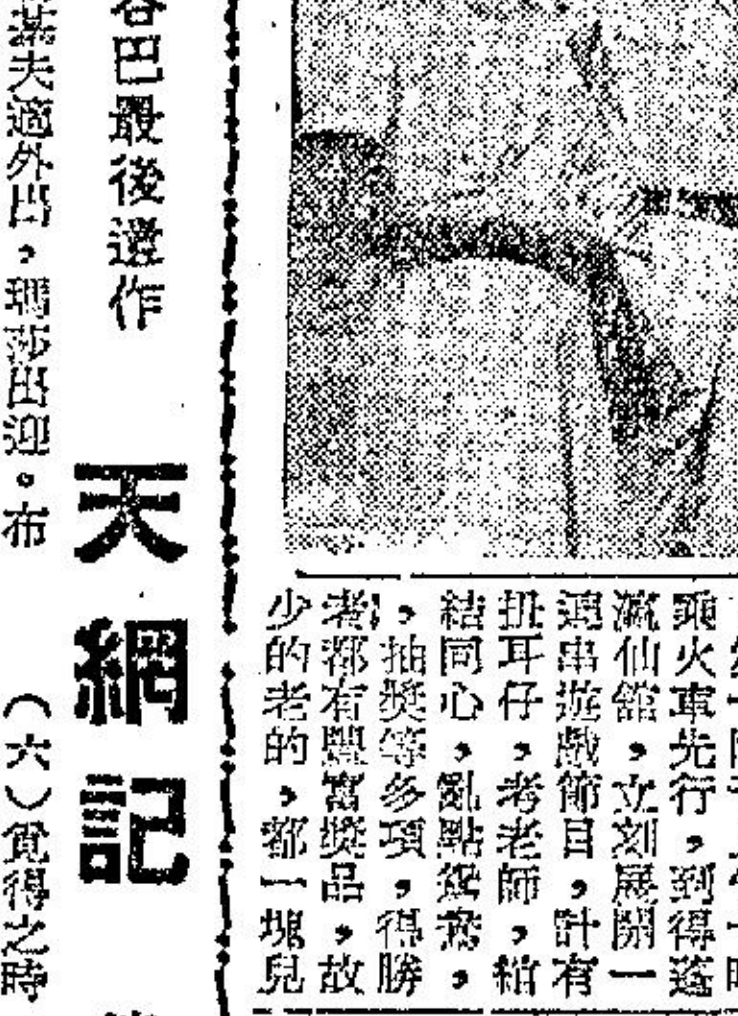 乘火車先行，到得蓬
瀛仙館，立刻展開一
連串遊戲節目，計有
扭耳仔，考老師，綰
結同心，亂點鴛鴦，
，抽獎等多項，得勝
者都有豐富獎品，故
少的老的，都一塊兒
谷巴最後遺作
天網記
某夫適外出，瑪莎出迎。布
（六）覺得之時